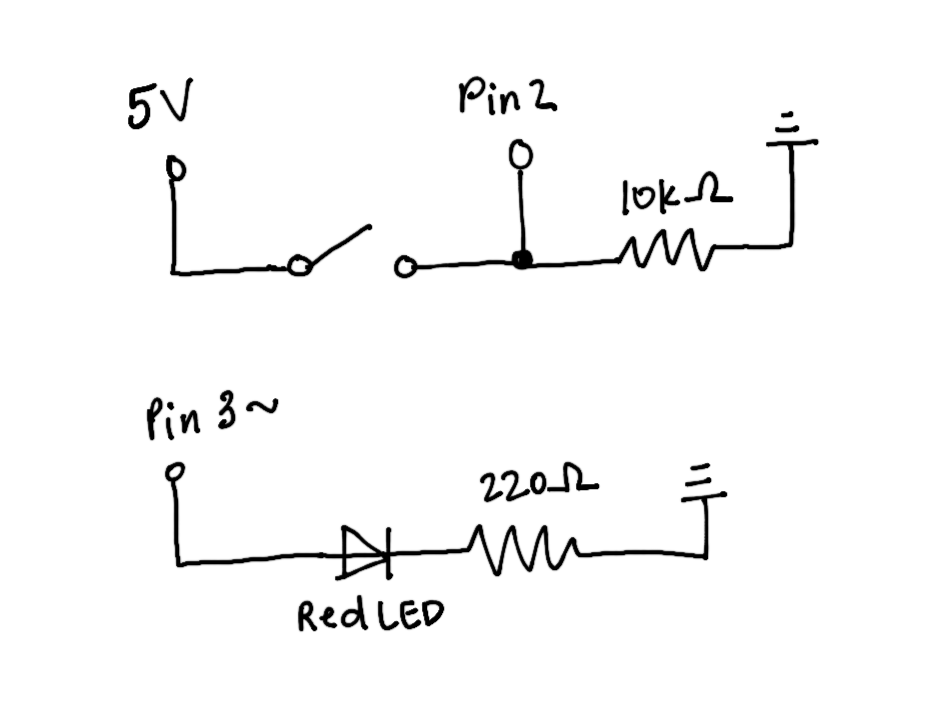 5V
Pin 2
10kΩ
Pin 3~
220Ω
Red LED